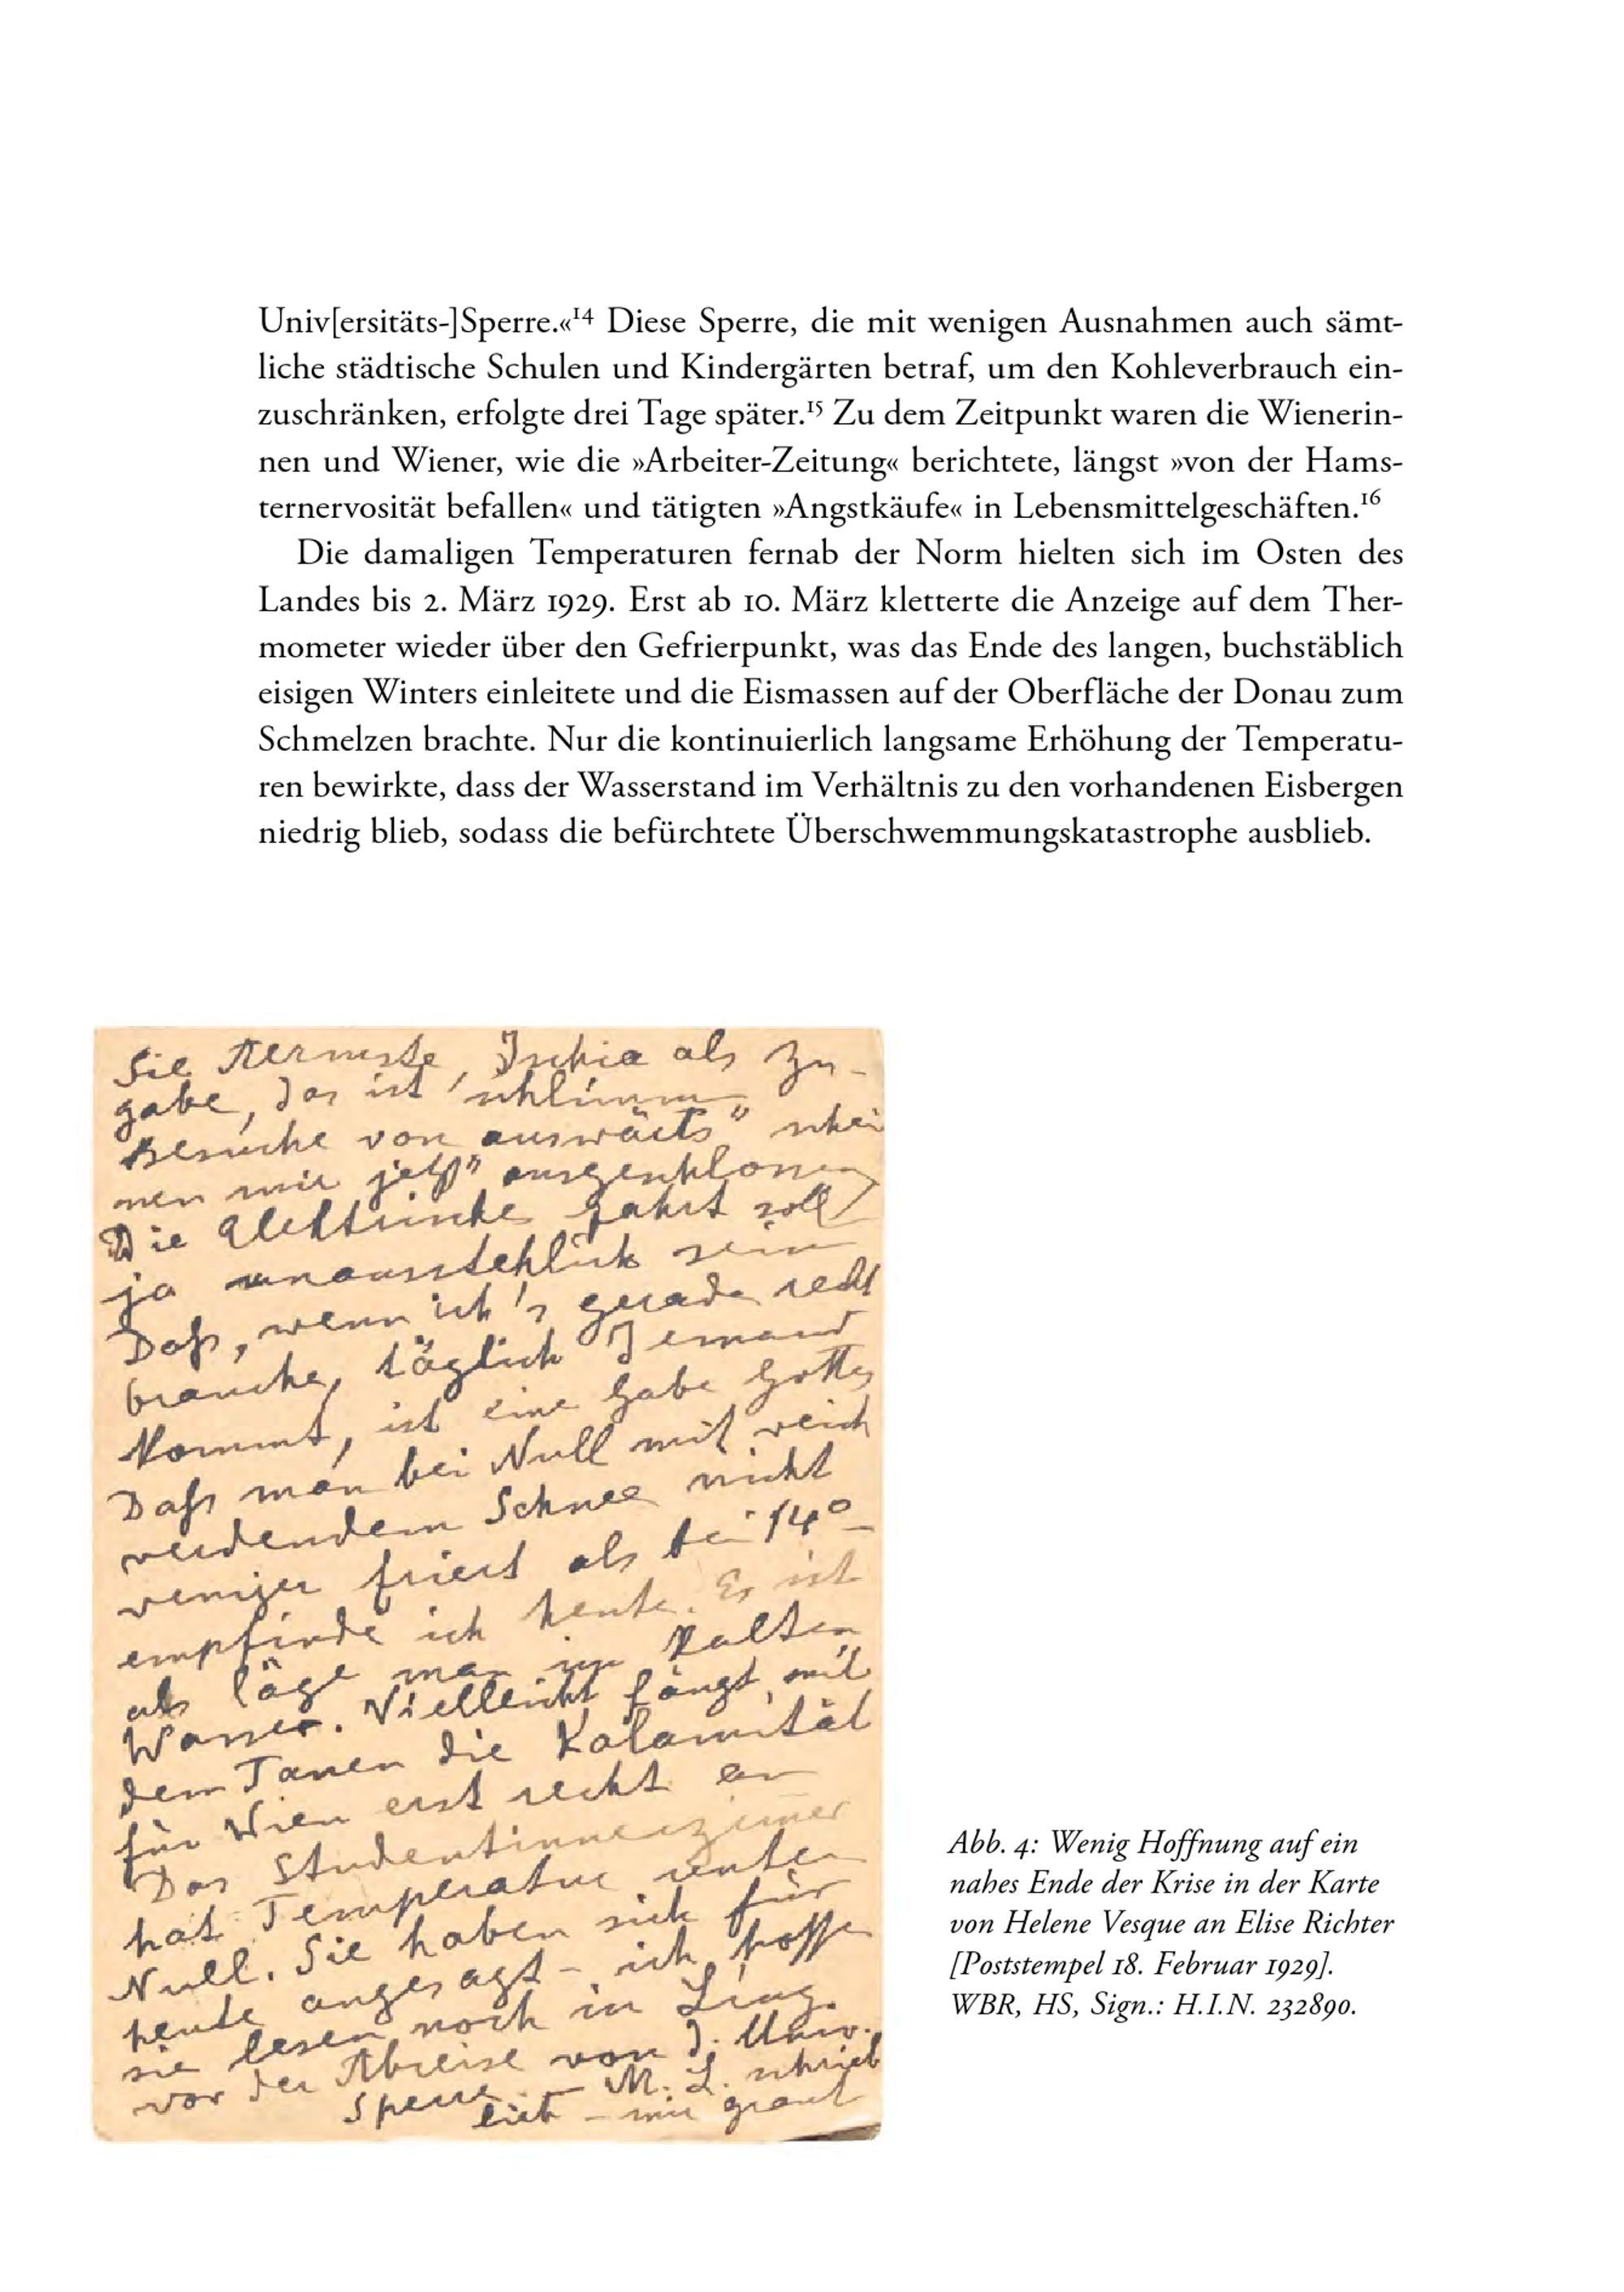 Univ[ersitäts-]Sperre.«¹⁴ Diese Sperre, die mit wenigen Ausnahmen auch sämt-
liche städtische Schulen und Kindergärten betraf, um den Kohleverbrauch ein-
zuschränken, erfolgte drei Tage später.¹⁵ Zu dem Zeitpunkt waren die Wienerin-
nen und Wiener, wie die »Arbeiter-Zeitung« berichtete, längst »von der Hams-
ternervosität befallen« und tätigten »Angstkäufe« in Lebensmittelgeschäften.¹⁶
Die damaligen Temperaturen fernab der Norm hielten sich im Osten des
Landes bis 2. März 1929. Erst ab 10. März kletterte die Anzeige auf dem Ther-
mometer wieder über den Gefrierpunkt, was das Ende des langen, buchstäblich
eisigen Winters einleitete und die Eismassen auf der Oberfläche der Donau zum
Schmelzen brachte. Nur die kontinuierlich langsame Erhöhung der Temperatu-
ren bewirkte, dass der Wasserstand im Verhältnis zu den vorhandenen Eisbergen
niedrig blieb, sodass die befürchtete Überschwemmungskatastrophe ausblieb.
Sie Aermste, Ischia als Zu-
gabe, das ist schlimm
Besuche von auswärts" schei
nen mir jetzt" ausgeschlossen
Die Elektrische Fahrt soll
ja unausstehlich sein
Daß, wenn ich's gerade recht
brauche, täglich Jemand
kommt, ist eine Gabe Gottes
Daß man bei Null mit weich
werdendem Schnee nicht
weniger friert als bei 14°
empfinde ich heute. Es ist
als läge man im kalten
Wasser. Vielleicht fängt mit
dem Tauen die Kalamität
für Wien erst recht an
Das Studentinnenzimmer
hat Temperatur unter
Null. Sie haben sich für
heute angesagt – ich hoffe
sie lesen noch in Ling.
vor der Abreise von d. Univ.
Sperre. – M. L. schrieb
lieb – mir graut
Abb. 4: Wenig Hoffnung auf ein
nahes Ende der Krise in der Karte
von Helene Vesque an Elise Richter
[Poststempel 18. Februar 1929].
WBR, HS, Sign.: H.I.N. 232890.